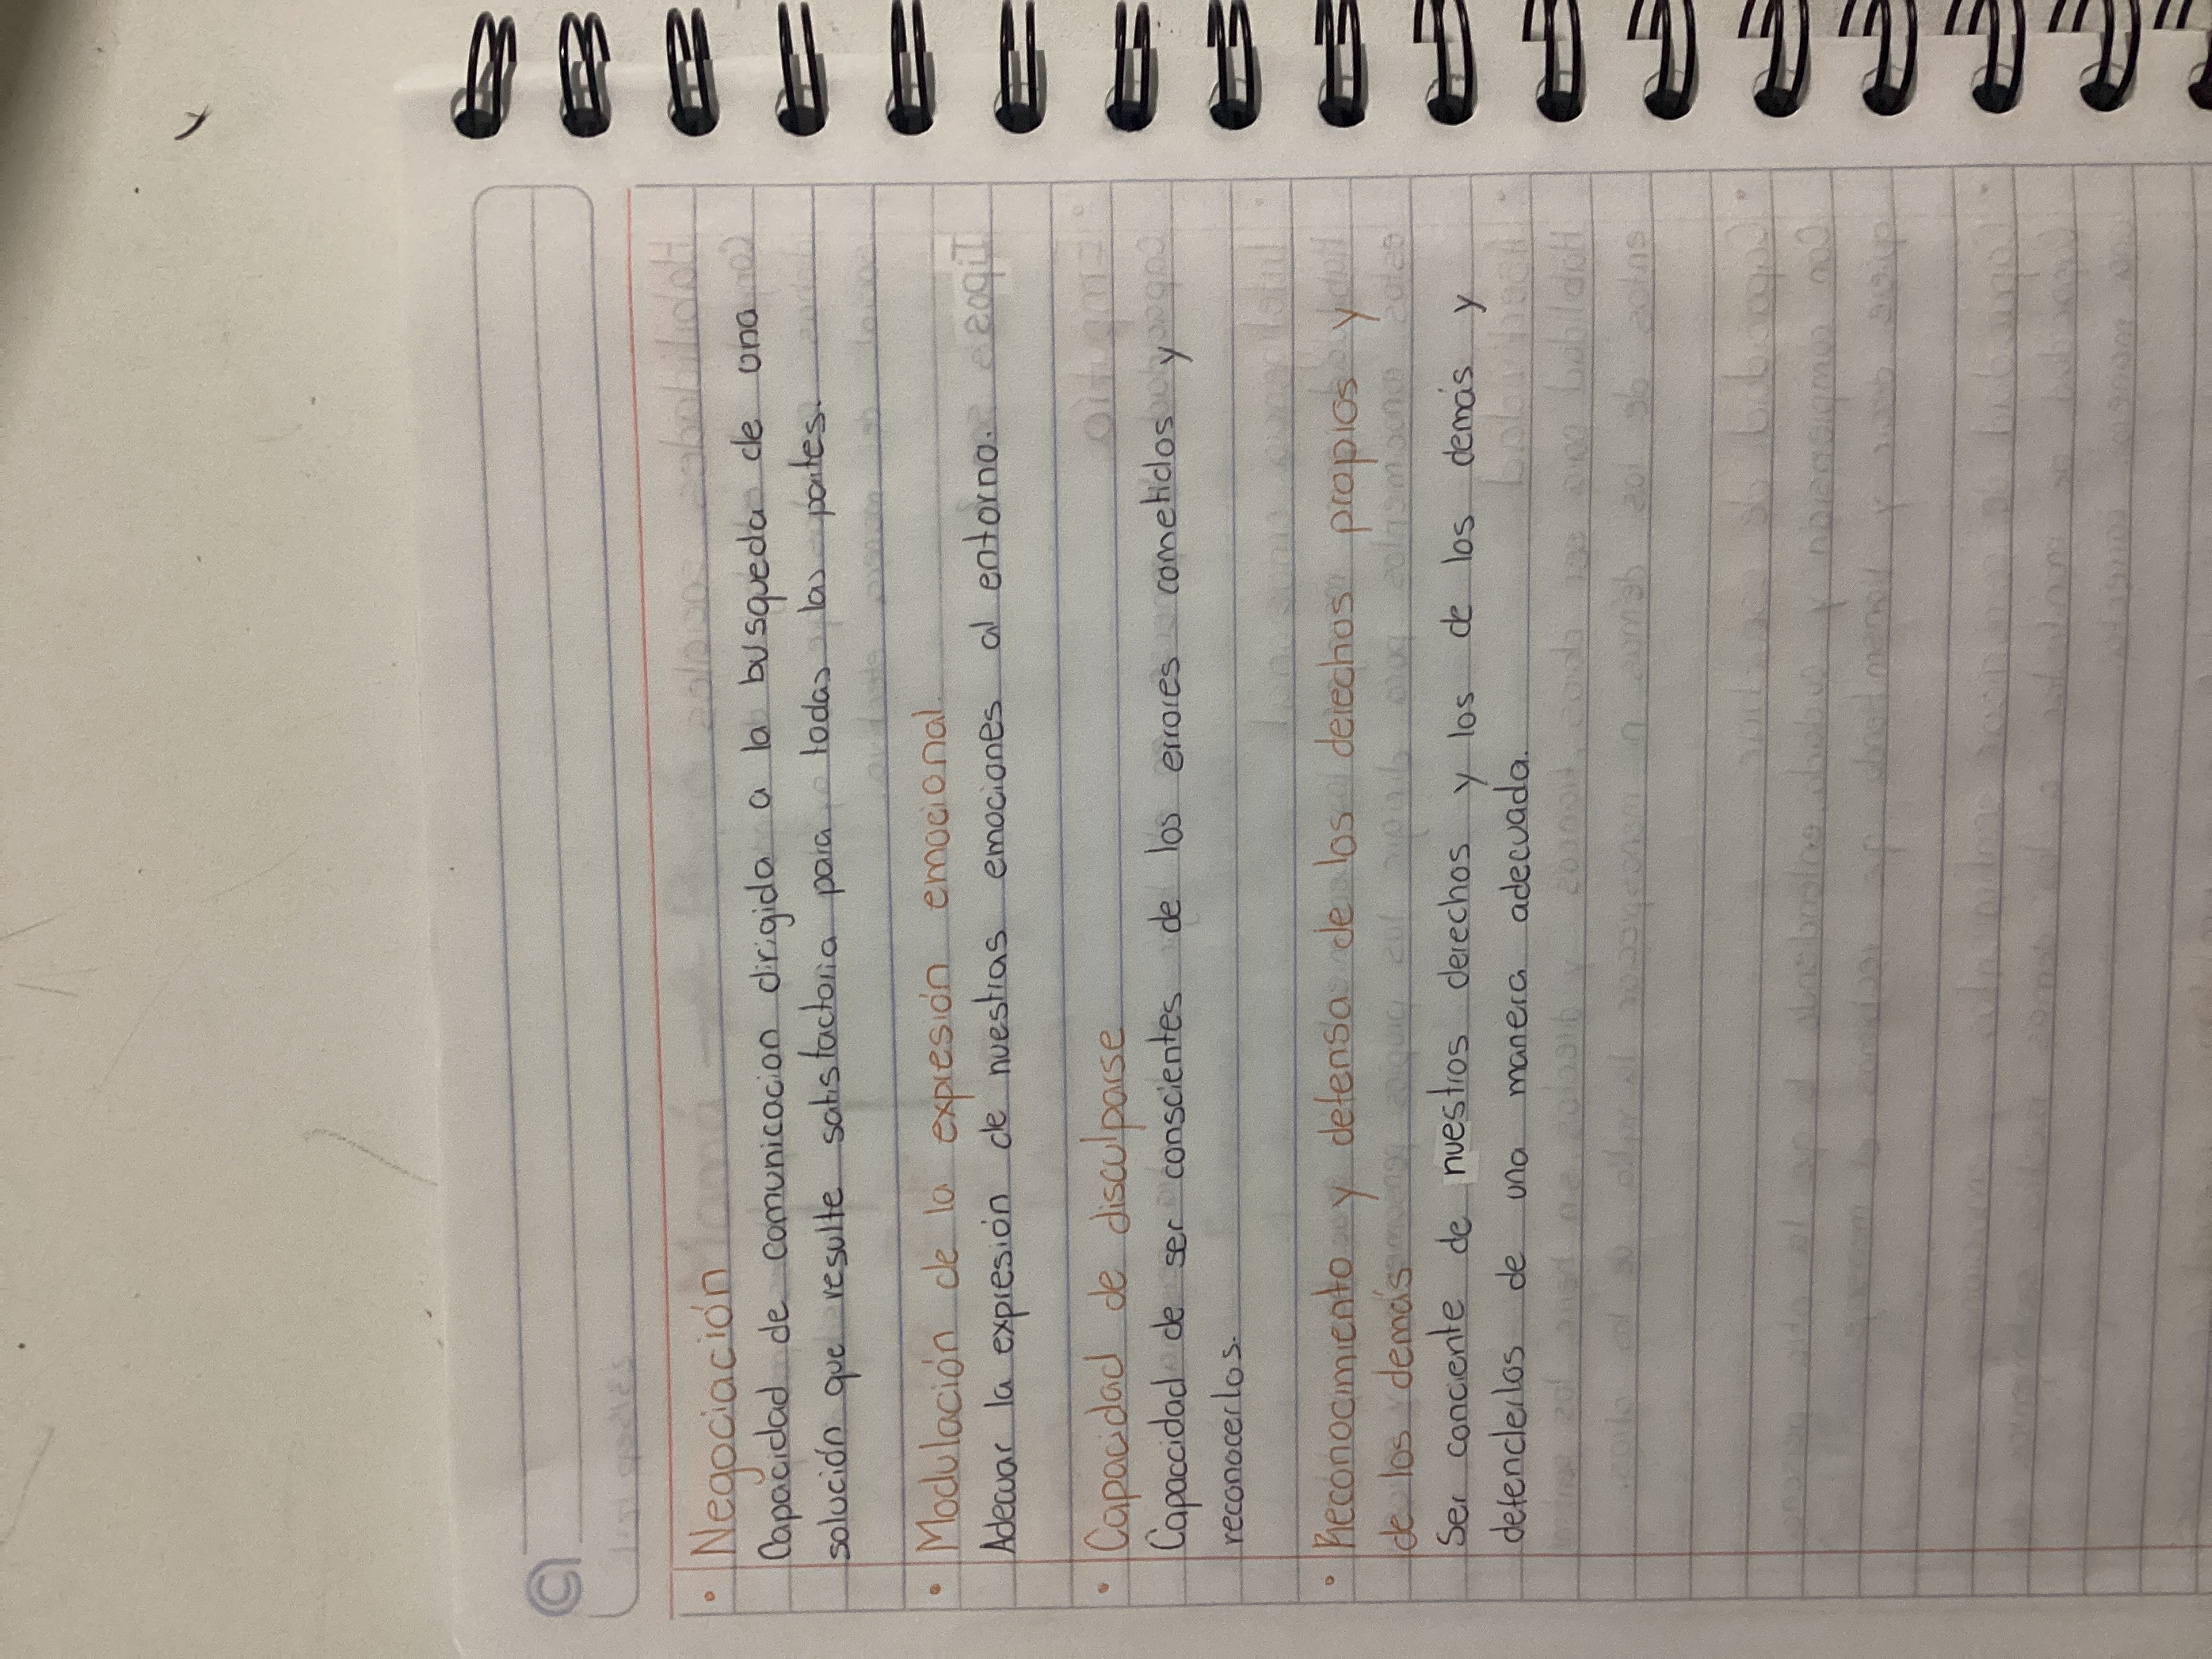 • Negociación
Capacidad de comunicacion dirigida a la busqueda de una
solución que resulte satisfactoria para todas las partes.
• Modulación de la expresión emocional
Adecuar la expresión de nuestras emociones al entorno.
• Capacidad de disculparse
Capaccidad de ser conscientes de los errores cometidos y
reconocerlos.
• Reconocimiento y defensa de los derechos propios y
de los demás
Ser conciente de nuestros derechos y los de los demás y
defenclerlos de una manera adecuada.